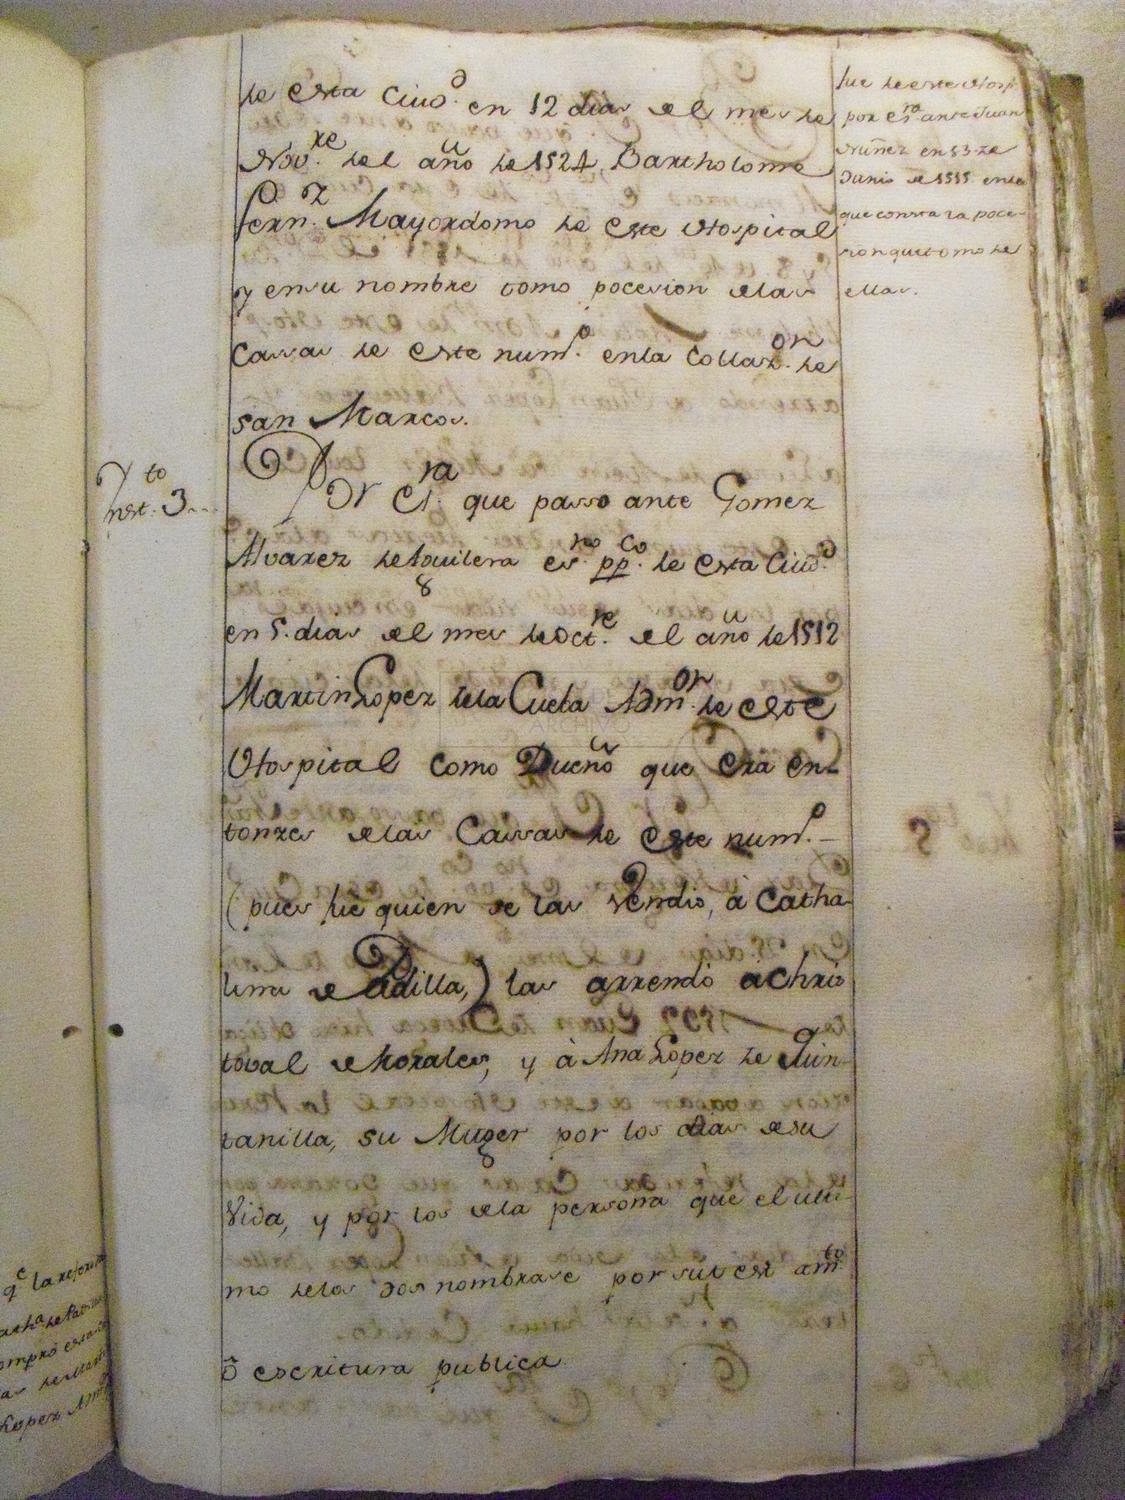 de esta Ciud.d en 12 dias del mes de
Nov.re del año de 1524, Bartholome
fern.z Mayordomo de este Hospital
y en su nombre tomo pocesion delas
Cassas de este num.o enla Collaz.on de
san Marcos.
Ynst.to 3..
Por Es.ra que passo ante Gomez
Alvarez de Aguilera es.no pp.co de esta Ciud.d
en 5. dias del mes de Oct.re del año de 1512
Martin Lopez dela Cueba Adm.or de este
Hospital como Dueño que era en-
tonzes delas Cassas de este num.o
(pues fue quien se las vendio, à Catha-
lina de Padilla,) las arrendó a Chris
toval de Morales, y à Ana Lopez de Quin-
tanilla, su Muger por los dias de su
Vida, y por los dela persona que el ulti-
mo delos dos nombrase por su test am.to
ò escritura publica
fue de este Hosp.l
por es.ra ante Juan
Nuñez en 53 de
Junio de 1515 enla
que consta la poce-
sion que tomo de
ellas.
q.e la referida
Lopez Adm